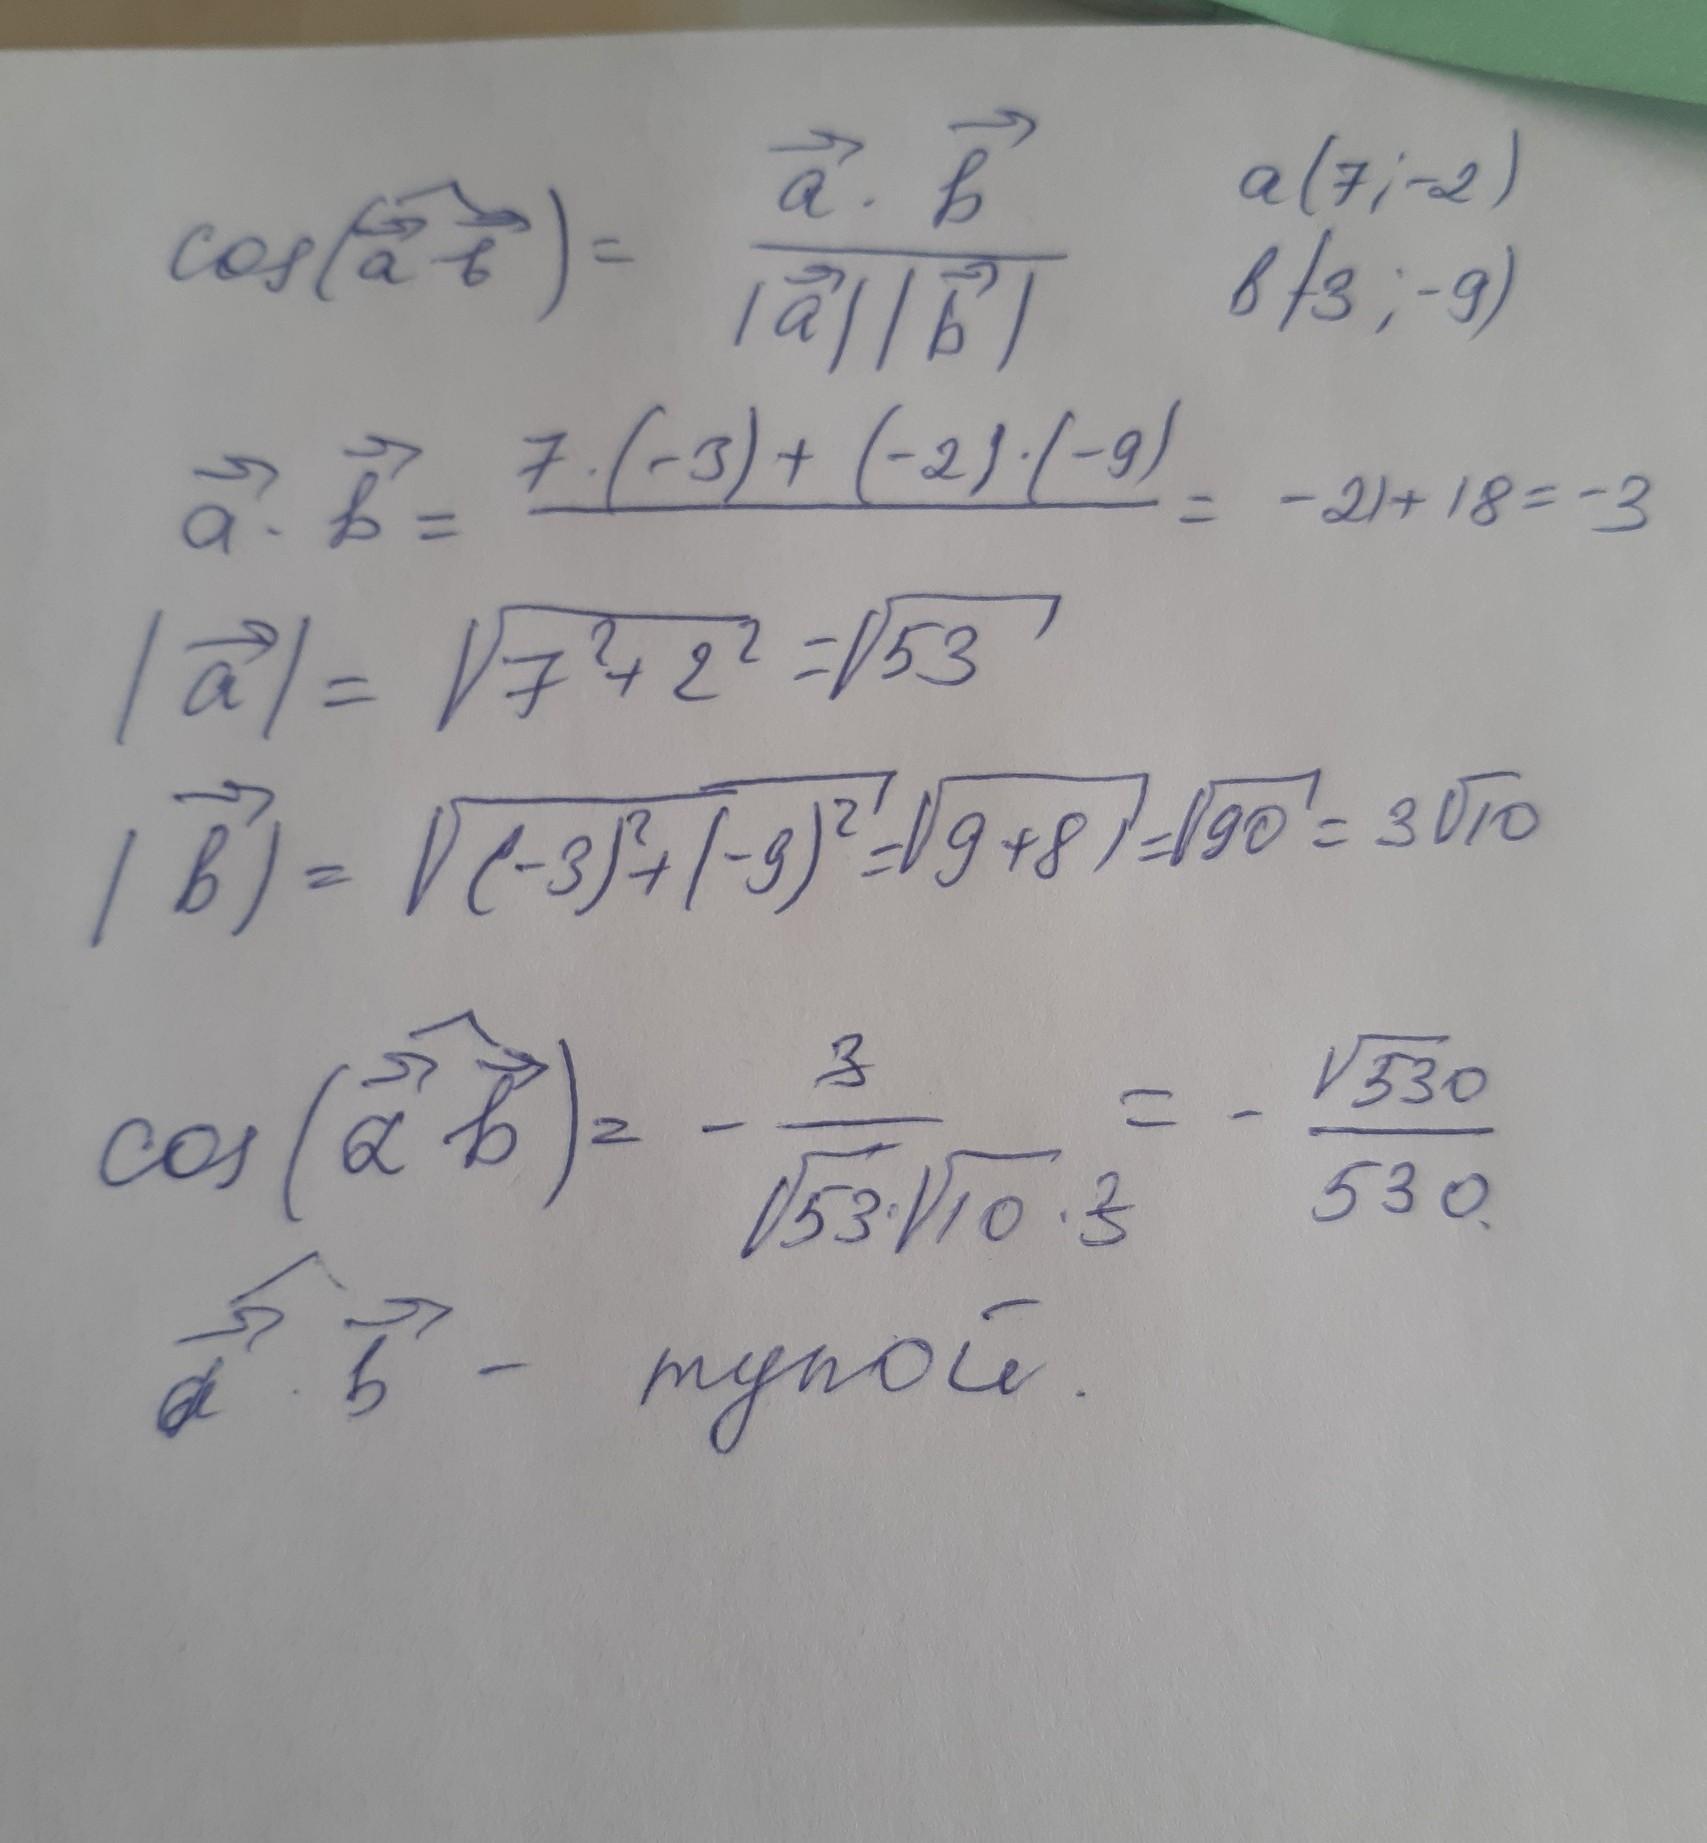 cos(a⃗ b⃗) = a⃗ · b⃗ / |a⃗| |b⃗|
a(7; -2)
b(-3; -9)
a⃗ · b⃗ = 7·(-3) + (-2)·(-9) = -21 + 18 = -3
|a⃗| = √7² + 2² = √53
|b⃗| = √(-3)² + (-9)² = √9+81 = √90 = 3√10
cos(a⃗ b⃗) = - 3 / √53·√10·3 = - √530 / 530.
a⃗ · b⃗ - тупой.